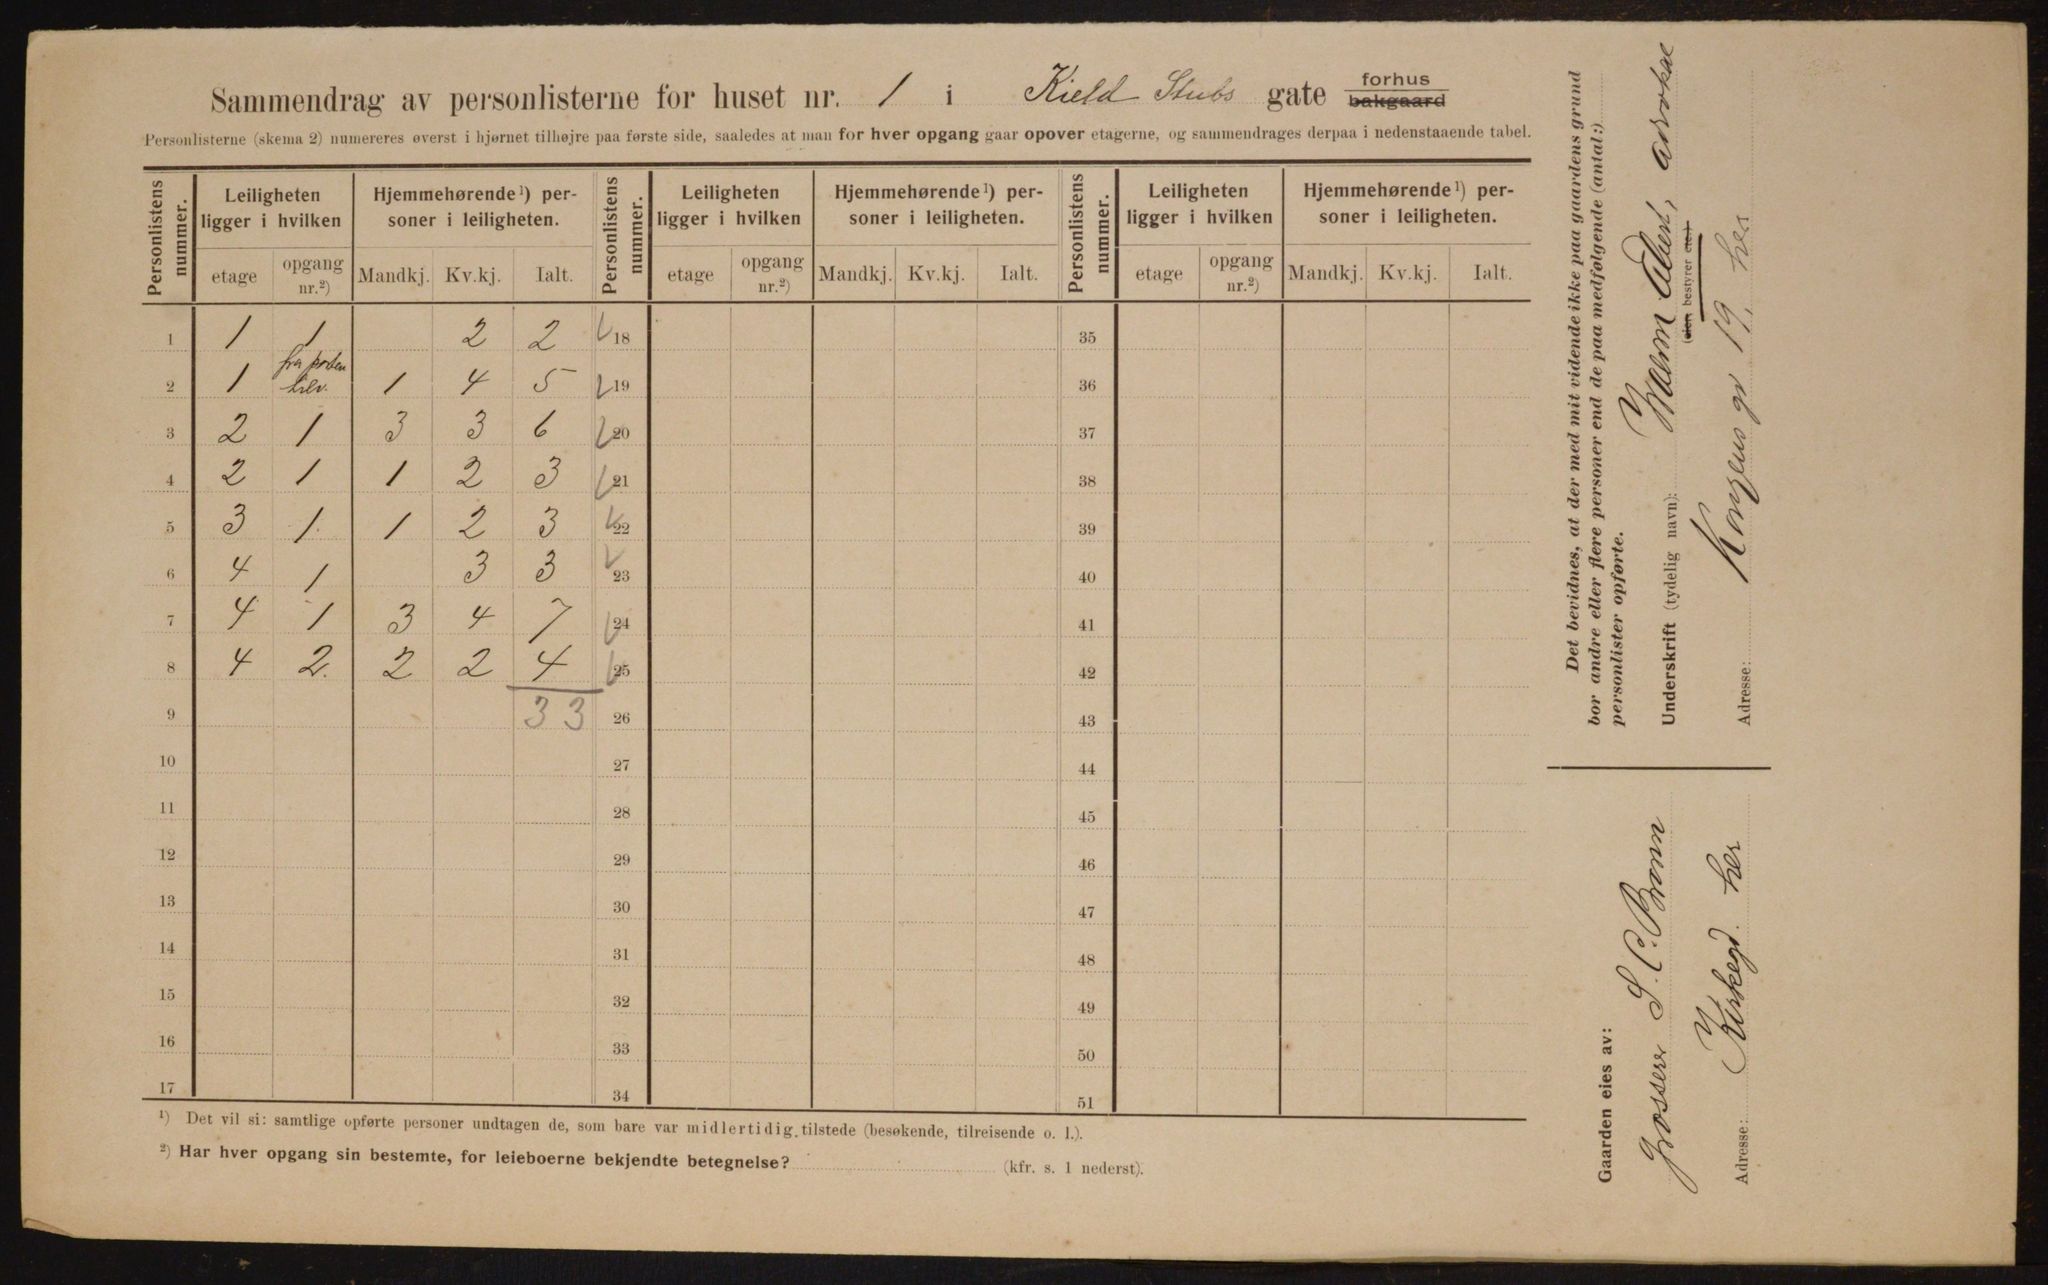 Sammendrag av personlisterne for huset nr. 1 i Kield Stubs gate forhus bakgaard
Personlisterne (skema 2) numereres øverst i hjørnet tilhøjre paa første side, saaledes at man for hver opgang gaar opover etagerne, og sammendrages derpaa i nedenstaaende tabel.
Personlistens nummer. Leiligheten ligger i hvilken Hjemmehørende¹) personer i leiligheten. Personlistens nummer. Leiligheten ligger i hvilken Hjemmehørende¹) personer i leiligheten. Personlistens nummer. Leiligheten ligger i hvilken Hjemmehørende¹) personer i leiligheten.
etage opgang nr.²) Mandkj. Kv.kj. Ialt. etage opgang nr.²) Mandkj. Kv.kj. Ialt. etage opgang nr.²) Mandkj. Kv.kj. Ialt.
1 1 1 2 2 18 35
2 1 fra porten 1 4 5 19 36
3 2 1 3 3 6 20 37
4 2 1 1 2 3 21 38
5 3 1 1 2 3 22 39
6 4 1 3 3 23 40
7 4 1 3 4 7 24 41
8 4 2. 2 2 4 25 42
9 33 26 43
10 27 44
11 28 45
12 29 46
13 30 47
14 31 48
15 32 49
16 33 50
17 34 51
¹) Det vil si: samtlige opførte personer undtagen de, som bare var midlertidig tilstede (besøkende, tilreisende o. l.).
²) Har hver opgang sin bestemte, for leieboerne bekjendte betegnelse? (kfr. s. 1 nederst).
Det bevidnes, at der med mit vidende ikke paa gaardens grund
bor andre eller flere personer end de paa medfølgende (antal:)
personlister opførte.
Underskrift (tydelig navn): advokat
(eien bestyrer etc.)
Adresse: Kongens gt 19, her
Gaarden eies av:
Grosserer S. C. Brunn
Adresse: Kirkegd. her